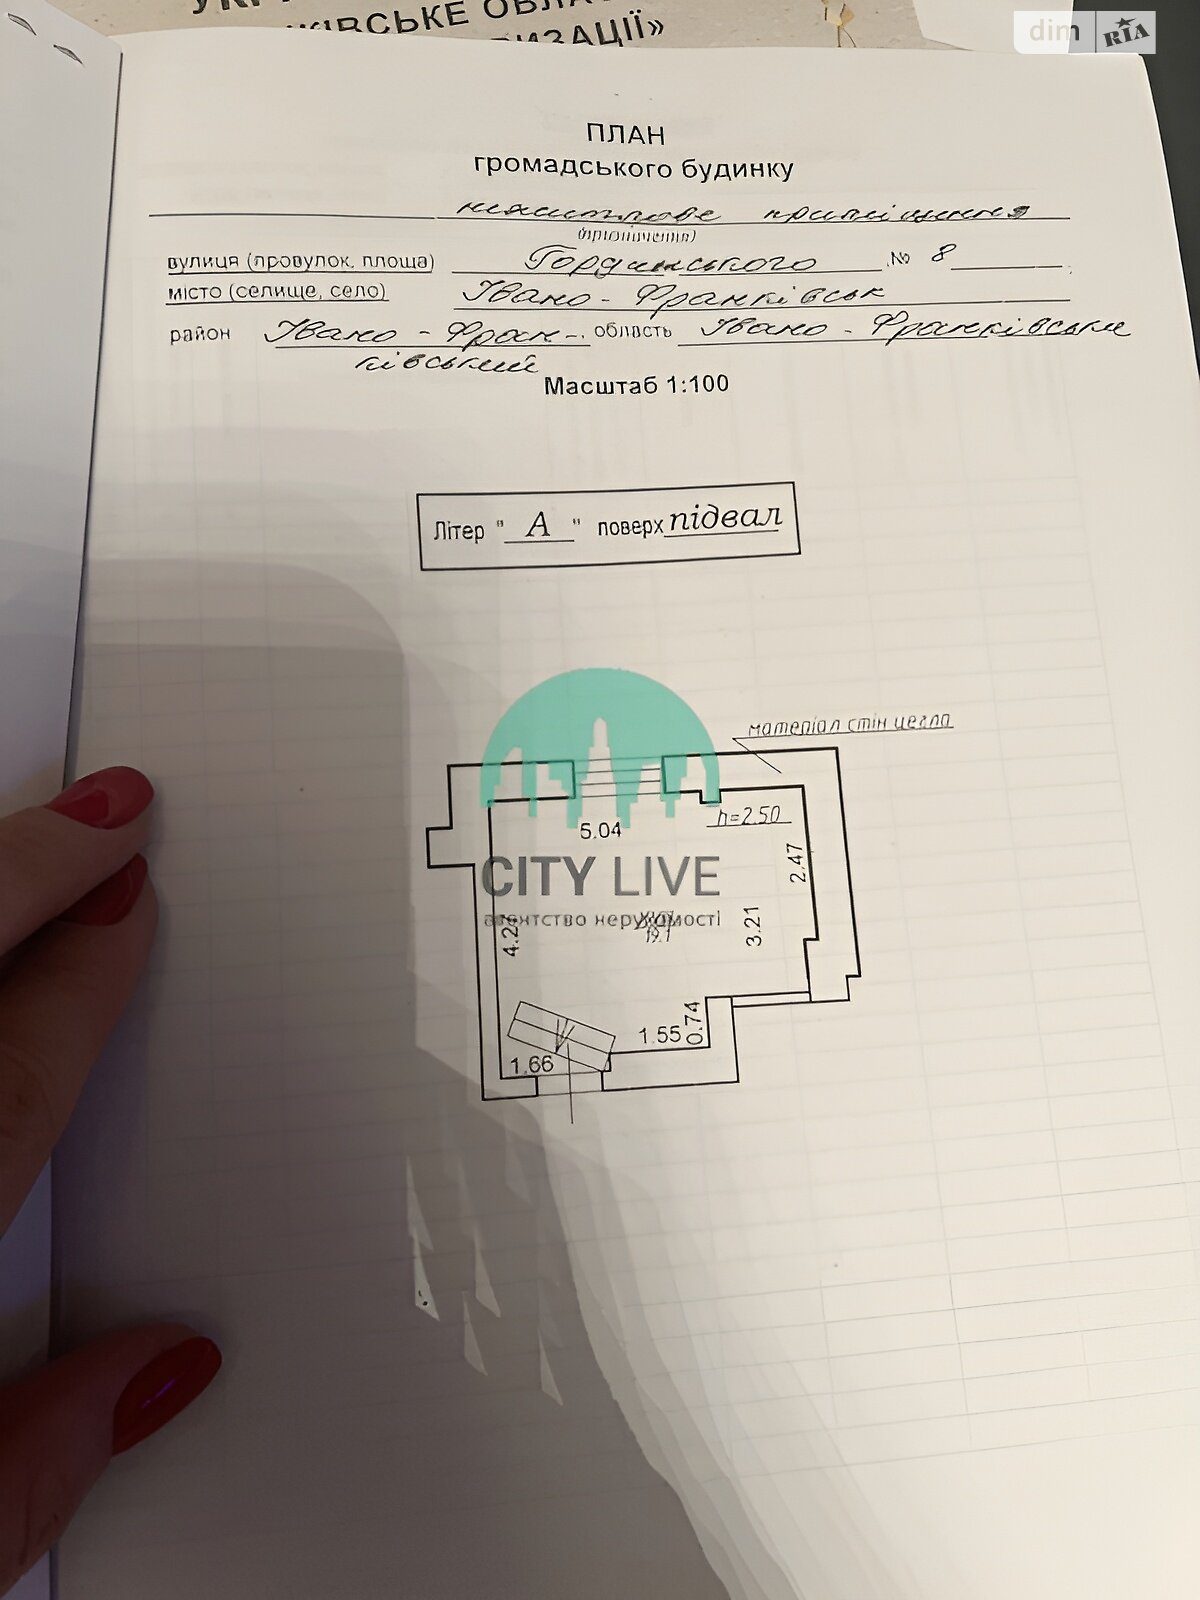 dim RIA
ПЛАН
громадського будинку
нежитлове приміщення
(призначення)
вулиця (провулок, площа) Гординського № 8
місто (селище, село) Івано-Франківськ
район Івано-Фран- область Івано-Франківськ
ківський
Масштаб 1:100
Літер "А" поверх підвал
матеріал стін цегла
h=2.50
5.04
2.47
CITY LIVE
агентство нерухомості
19.1
3.21
0.74
1.55
1.66